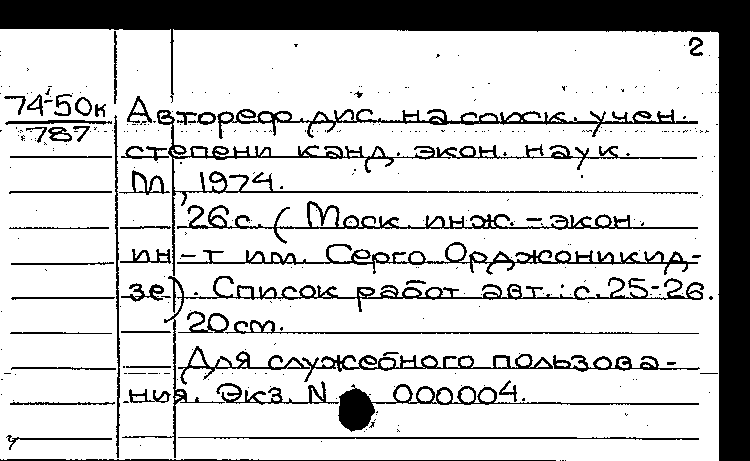 2
74-50к
787
Автореф. дис. на соиск. учен.
степени канд. экон. наук.
М., 1974.
26с. (Моск. инж.-экон.
ин-т им. Серго Орджоникид-
зе). Список работ авт.: с.25-26.
20см.
Для служебного пользова-
ния. Экз. N 000004.